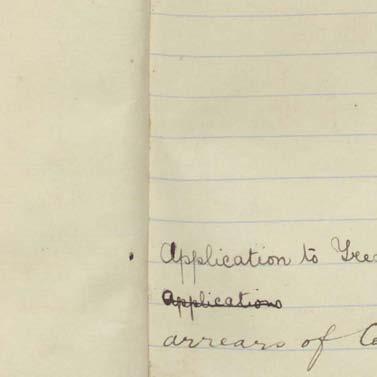 Application to
Applications
arrears of